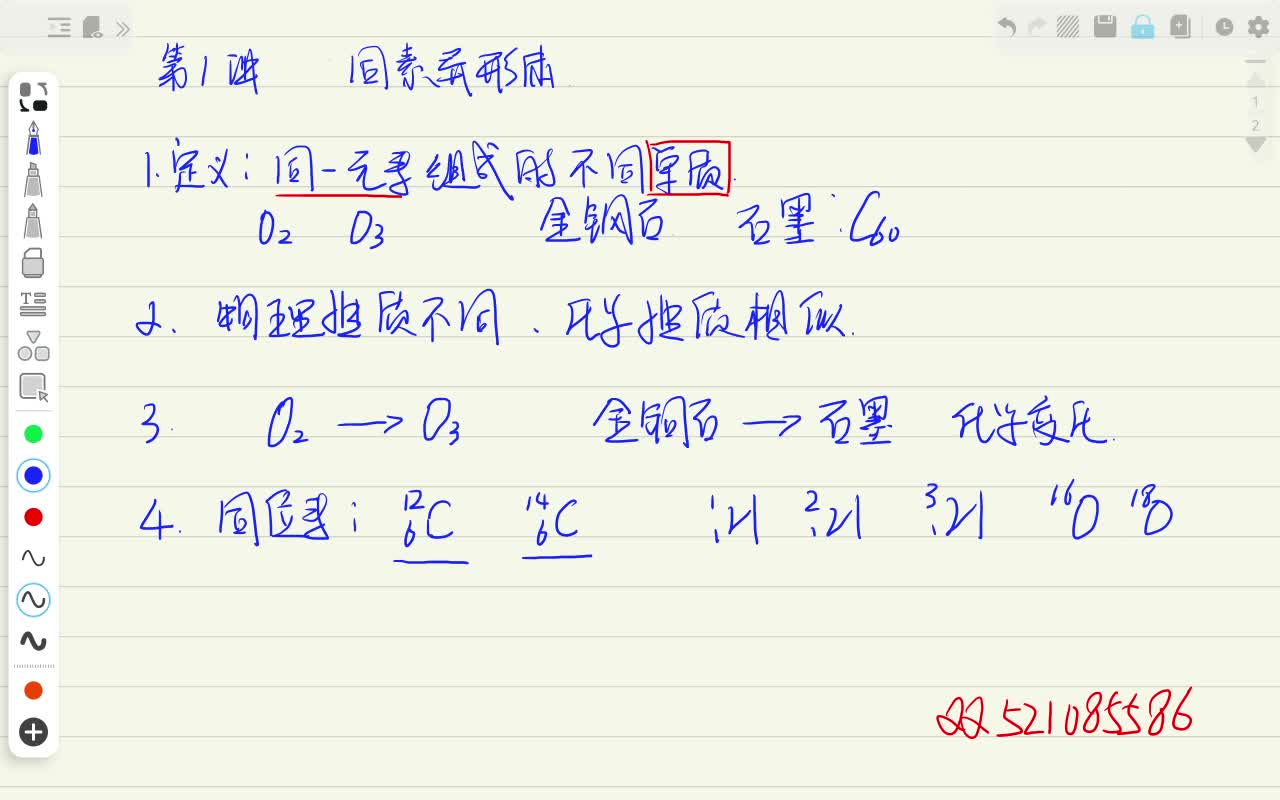 第1讲 同素异形体
1.定义:同一元素组成的不同单质.
O₂ O₃ 金钢石 石墨 C₆₀
2. 物理性质不同、化学性质相似.
3. O₂ → O₃ 金钢石 → 石墨 化学变化.
4. 同位素: ¹²₆C ¹⁴₆C ¹₁H ²₁H ³₁H ¹⁶O ¹⁸O
QQ 521085586
1
2